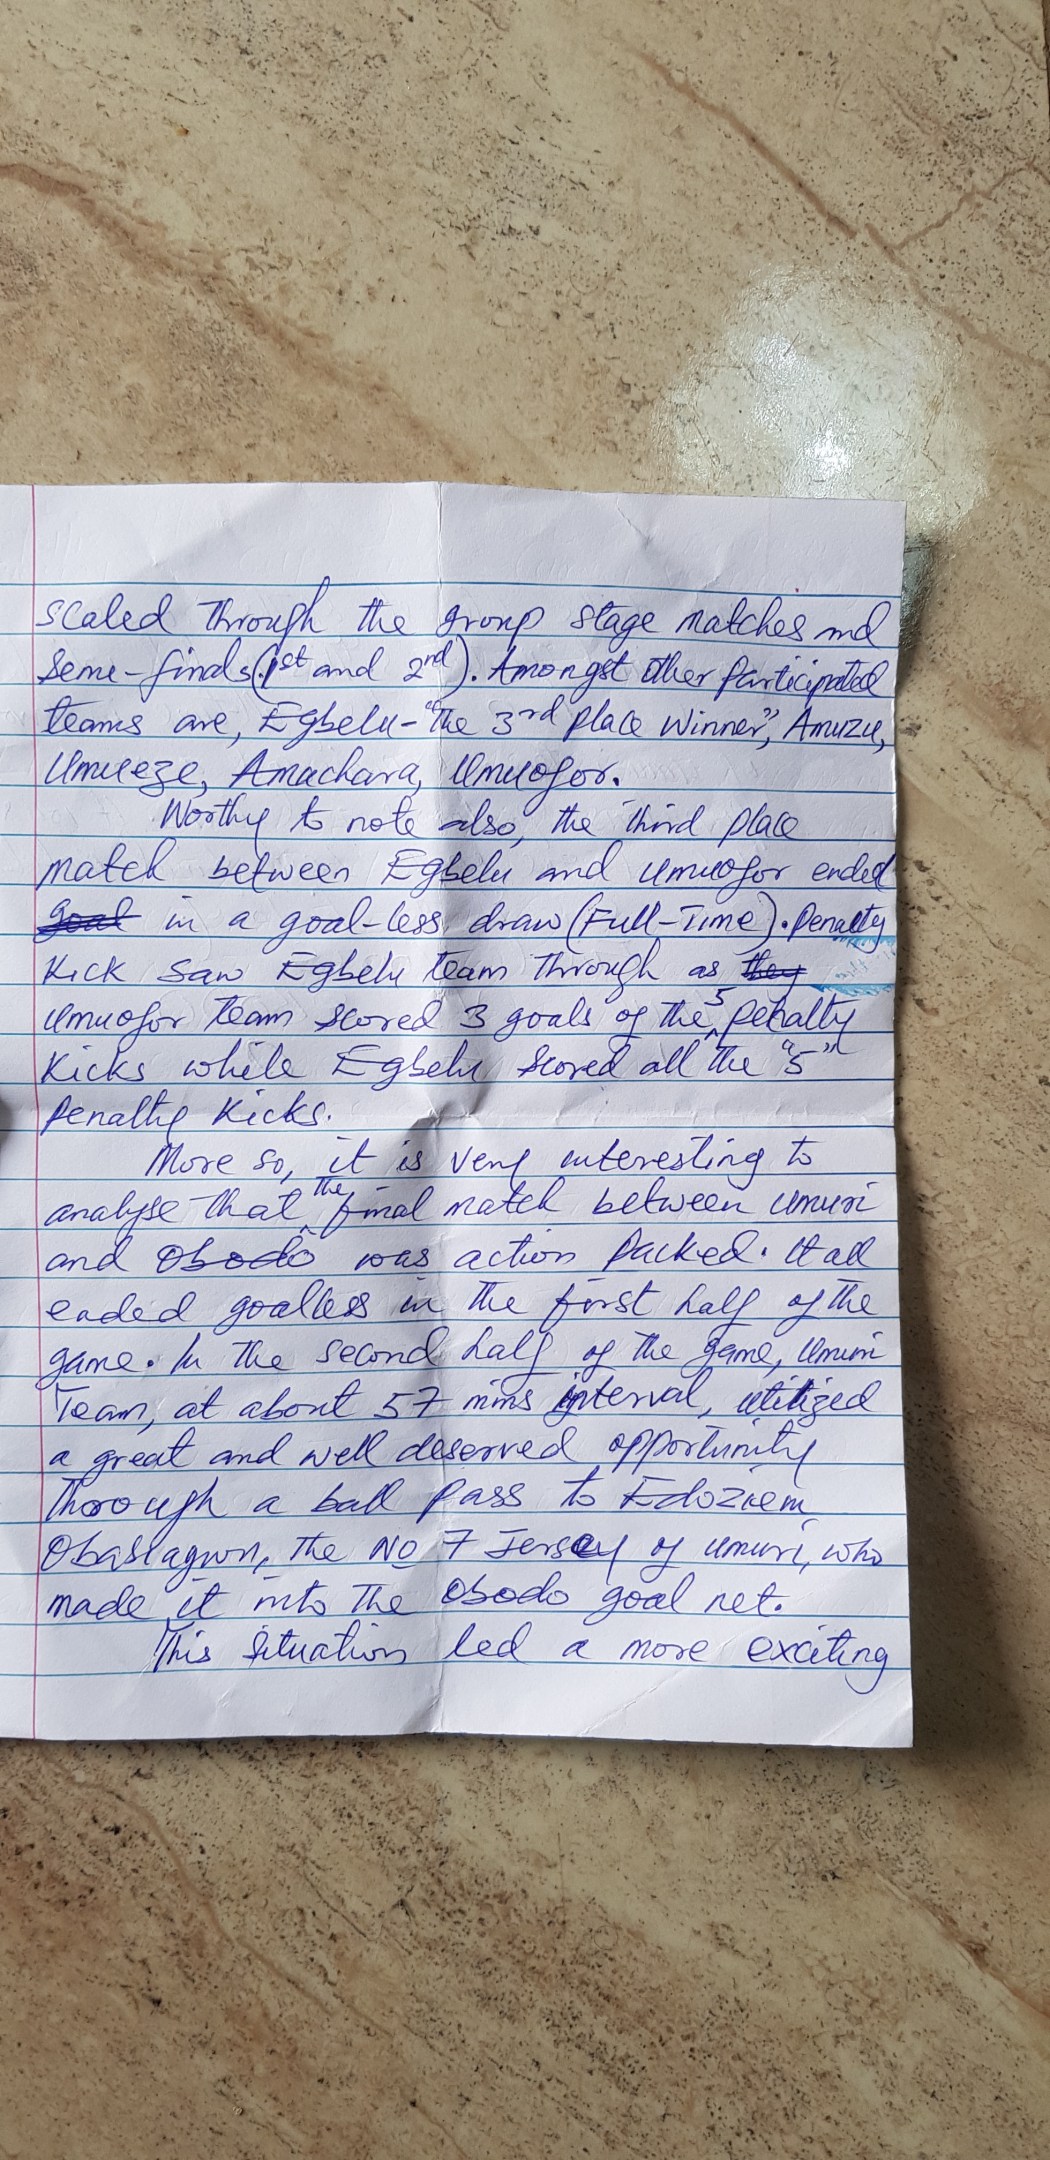 scaled through the group stage matches and
Seme-finals (1st and 2nd). Amongst other participated
teams are, Egbelu - "The 3rd place winner", Amuzu,
Umueze, Amachara, Umuofor.
Worthy to note also, the third place
match between Egbelu and Umuofor ended
goal in a goal-less draw (Full-Time). Penalty
Kick saw Egbelu team through as they
Umuofor team scored 3 goals of the 5 penalty
Kicks while Egbelu scored all the "5"
Penalty Kicks.
More so, it is very interesting to
analyse that the final match between Umuri
and Obodo was action packed. It all
ended goalless in the first half of the
game. In the second half of the game, Umuri
Team, at about 57 mins interval, utilized
a great and well deserved opportunity
through a ball pass to Edoziem
the No 7 Jersey of Umuri, who
made it into the Obodo goal net.
This situation led a more exciting